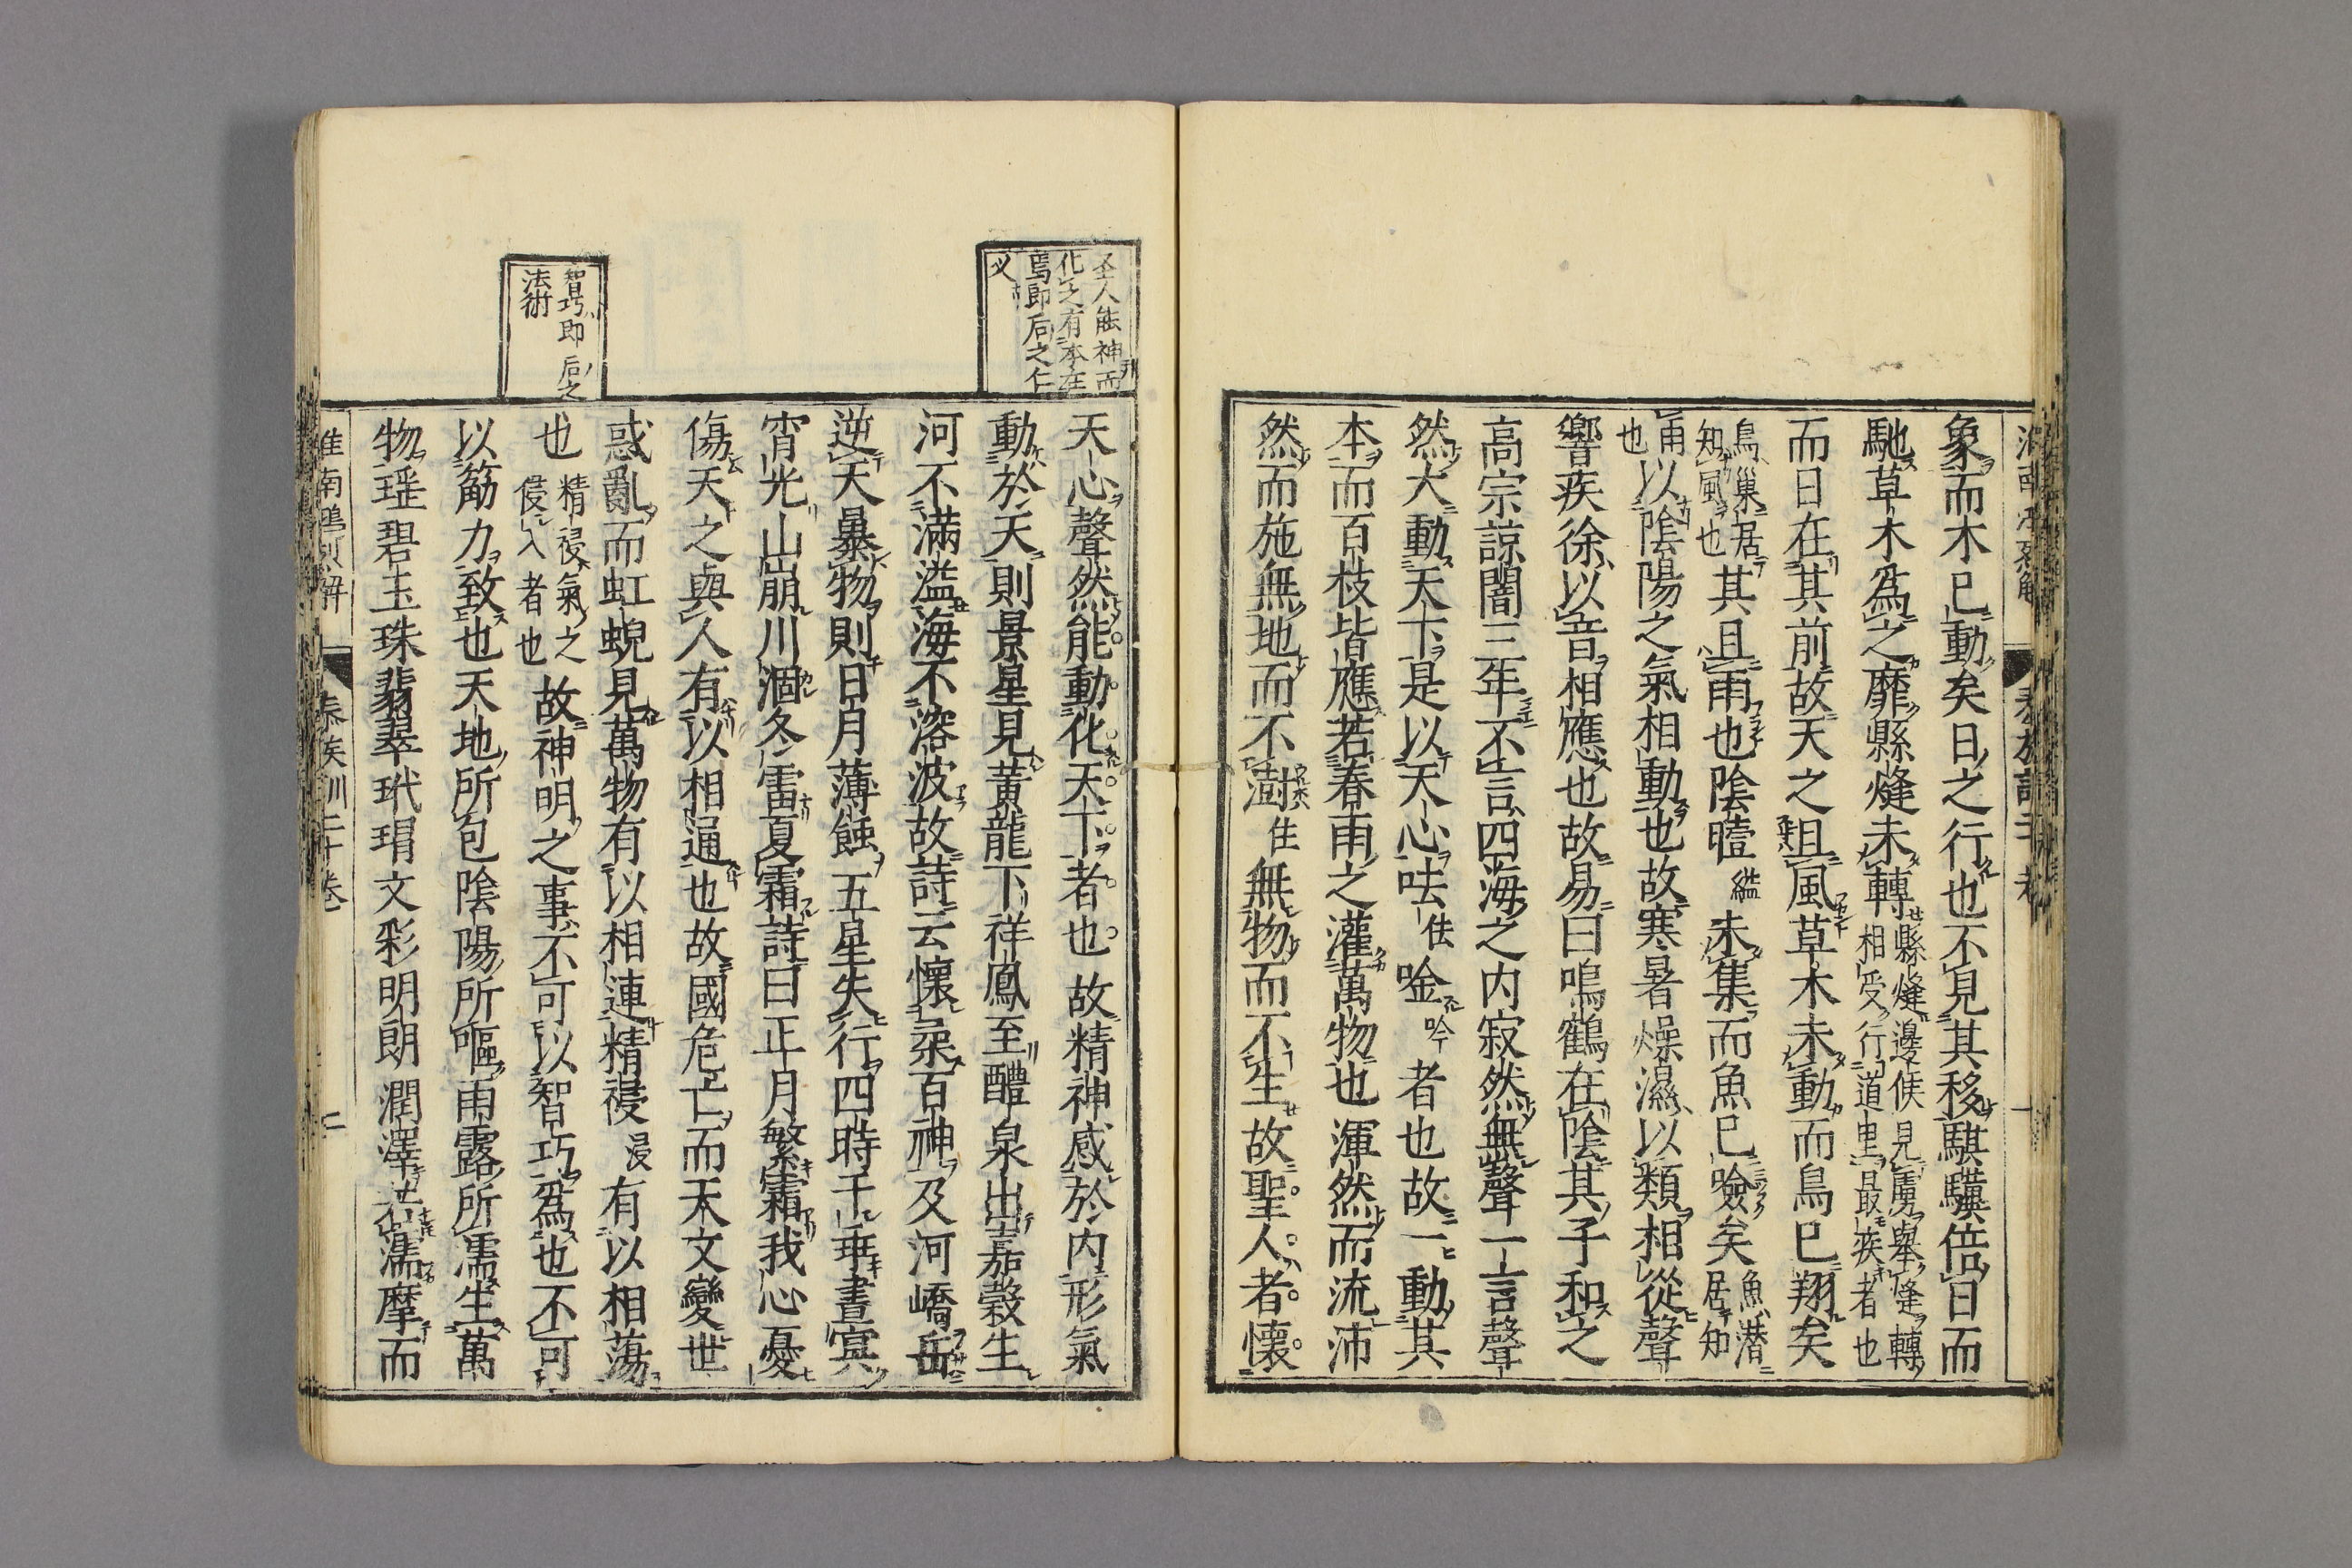 象而木已動矣日之行也不見其移騏驥倍日而
馳草木爲之靡縣熢未轉縣熢邊候見虜舉熢轉相受行道里最疾者也
而日在其前故天之且風草木未動而鳥已翔矣
鳥巢居知風也其且雨也陰曀䭇未集而魚已噞矣魚潛居知
雨也以陰陽之氣相動也故寒暑燥濕以類相從聲
響疾徐以音相應也故易曰鳴鶴在陰其子和之
高宗諒闇三年不言四海之内寂然無聲一言聲
然大動天下是以天心呿㤼唫吟者也故一動其
本而百枝皆應若春雨之灌萬物也渾然而流沛
然而施無地而不澍住無物而不生故聖人者懷
天心聲然能動化天下者也故精神感於内形氣
動於天則景星見黃龍下祥鳳至醴泉出嘉穀生
河不滿溢海不溶波故詩云懷柔百神及河嶠岳
逆天暴物則日月薄蝕五星失行四時干乖晝冥
宵光山崩川涸冬雷夏霜詩曰正月繁霜我心憂
傷天之與人有以相通也故國危亡而天文變世
惑亂而虹蜺見萬物有以相連精祲浸有以相蕩
也精祲氣之侵入者也故神明之事不可以智巧爲也不可
以筋力致也天地所包陰陽所嘔雨露所濡生萬
物瑶碧玉珠翡翠玳瑁文彩明朗潤澤若濡摩而
淮南鴻烈解 泰族訓二十卷 二
圣人能神而
化之有本在
焉即后之仁
义
智巧即后之
法術